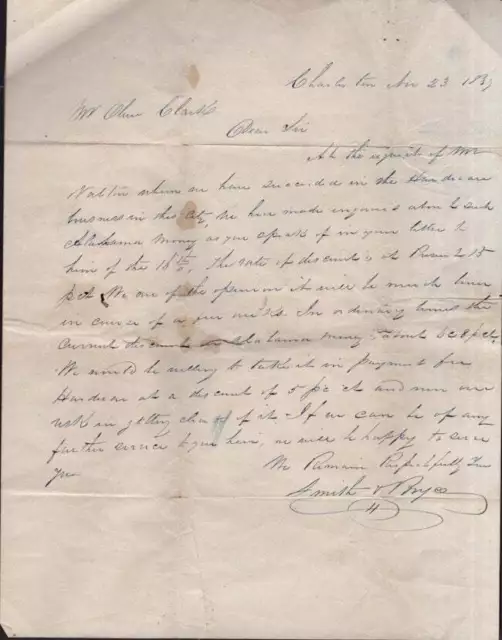 Charleston Nov 23 183
Mr Clark
Dear Sir
At the request of Mr
whom we have succeeded in the Hardware
business in this City, We have made inquiries about such
Alabama money as you speak of in your letter to
him of the 18th. The rate of discount is at
We are of the opinion it will be much lower
in course of a few weeks. In ordinary times the
current discount on Alabama money is about
We would be willing to take it in payment for
Hardware at a discount of 5 p ct and run our
risk in getting of it. If we can be of any
further service to you here, we will be happy to serve
you
We Remain Respectfully Yrs
Smith &